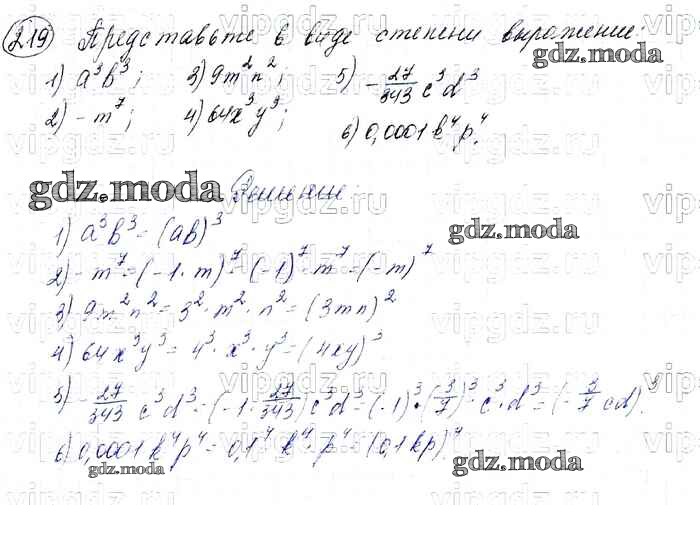 219 Представьте в виде степени выражение:
1) a³b³; 3) 9m²n²; 5) -27/343 c³d³
2) -m⁷; 4) 64x³y³; 6) 0,0001k⁴p⁴.
gdz.moda
gdz.moda Решение:
1) a³b³ = (ab)³
gdz.moda
2) -m⁷ = (-1·m)⁷ = (-1)⁷·m⁷ = (-m)⁷
3) 9m²n² = 3²·m²·n² = (3mn)²
4) 64x³y³ = 4³·x³·y³ = (4xy)³.
gdz.moda
5) -27/343 c³d³ = (-1·27/343)c³d³ = (-1)³·(3/7)³·c³·d³ = (-3/7 cd)³.
6) 0,0001k⁴p⁴ = 0,1⁴·k⁴·p⁴ = (0,1kp)⁴.
gdz.moda gdz.moda
vipgdz.ru